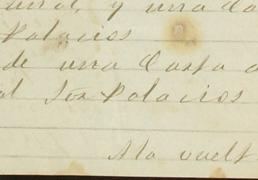 y una Ca
Palacios
de una Carta a
al Sor Palacios
Ala vuelt